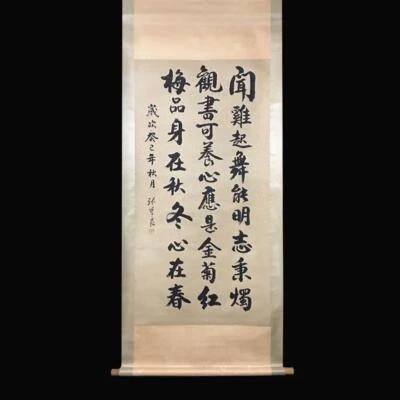 聞雞起舞能明志秉燭
觀書可養心應是金菊紅
梅品身在秋冬心在春
歲次癸巳年秋月 張學良